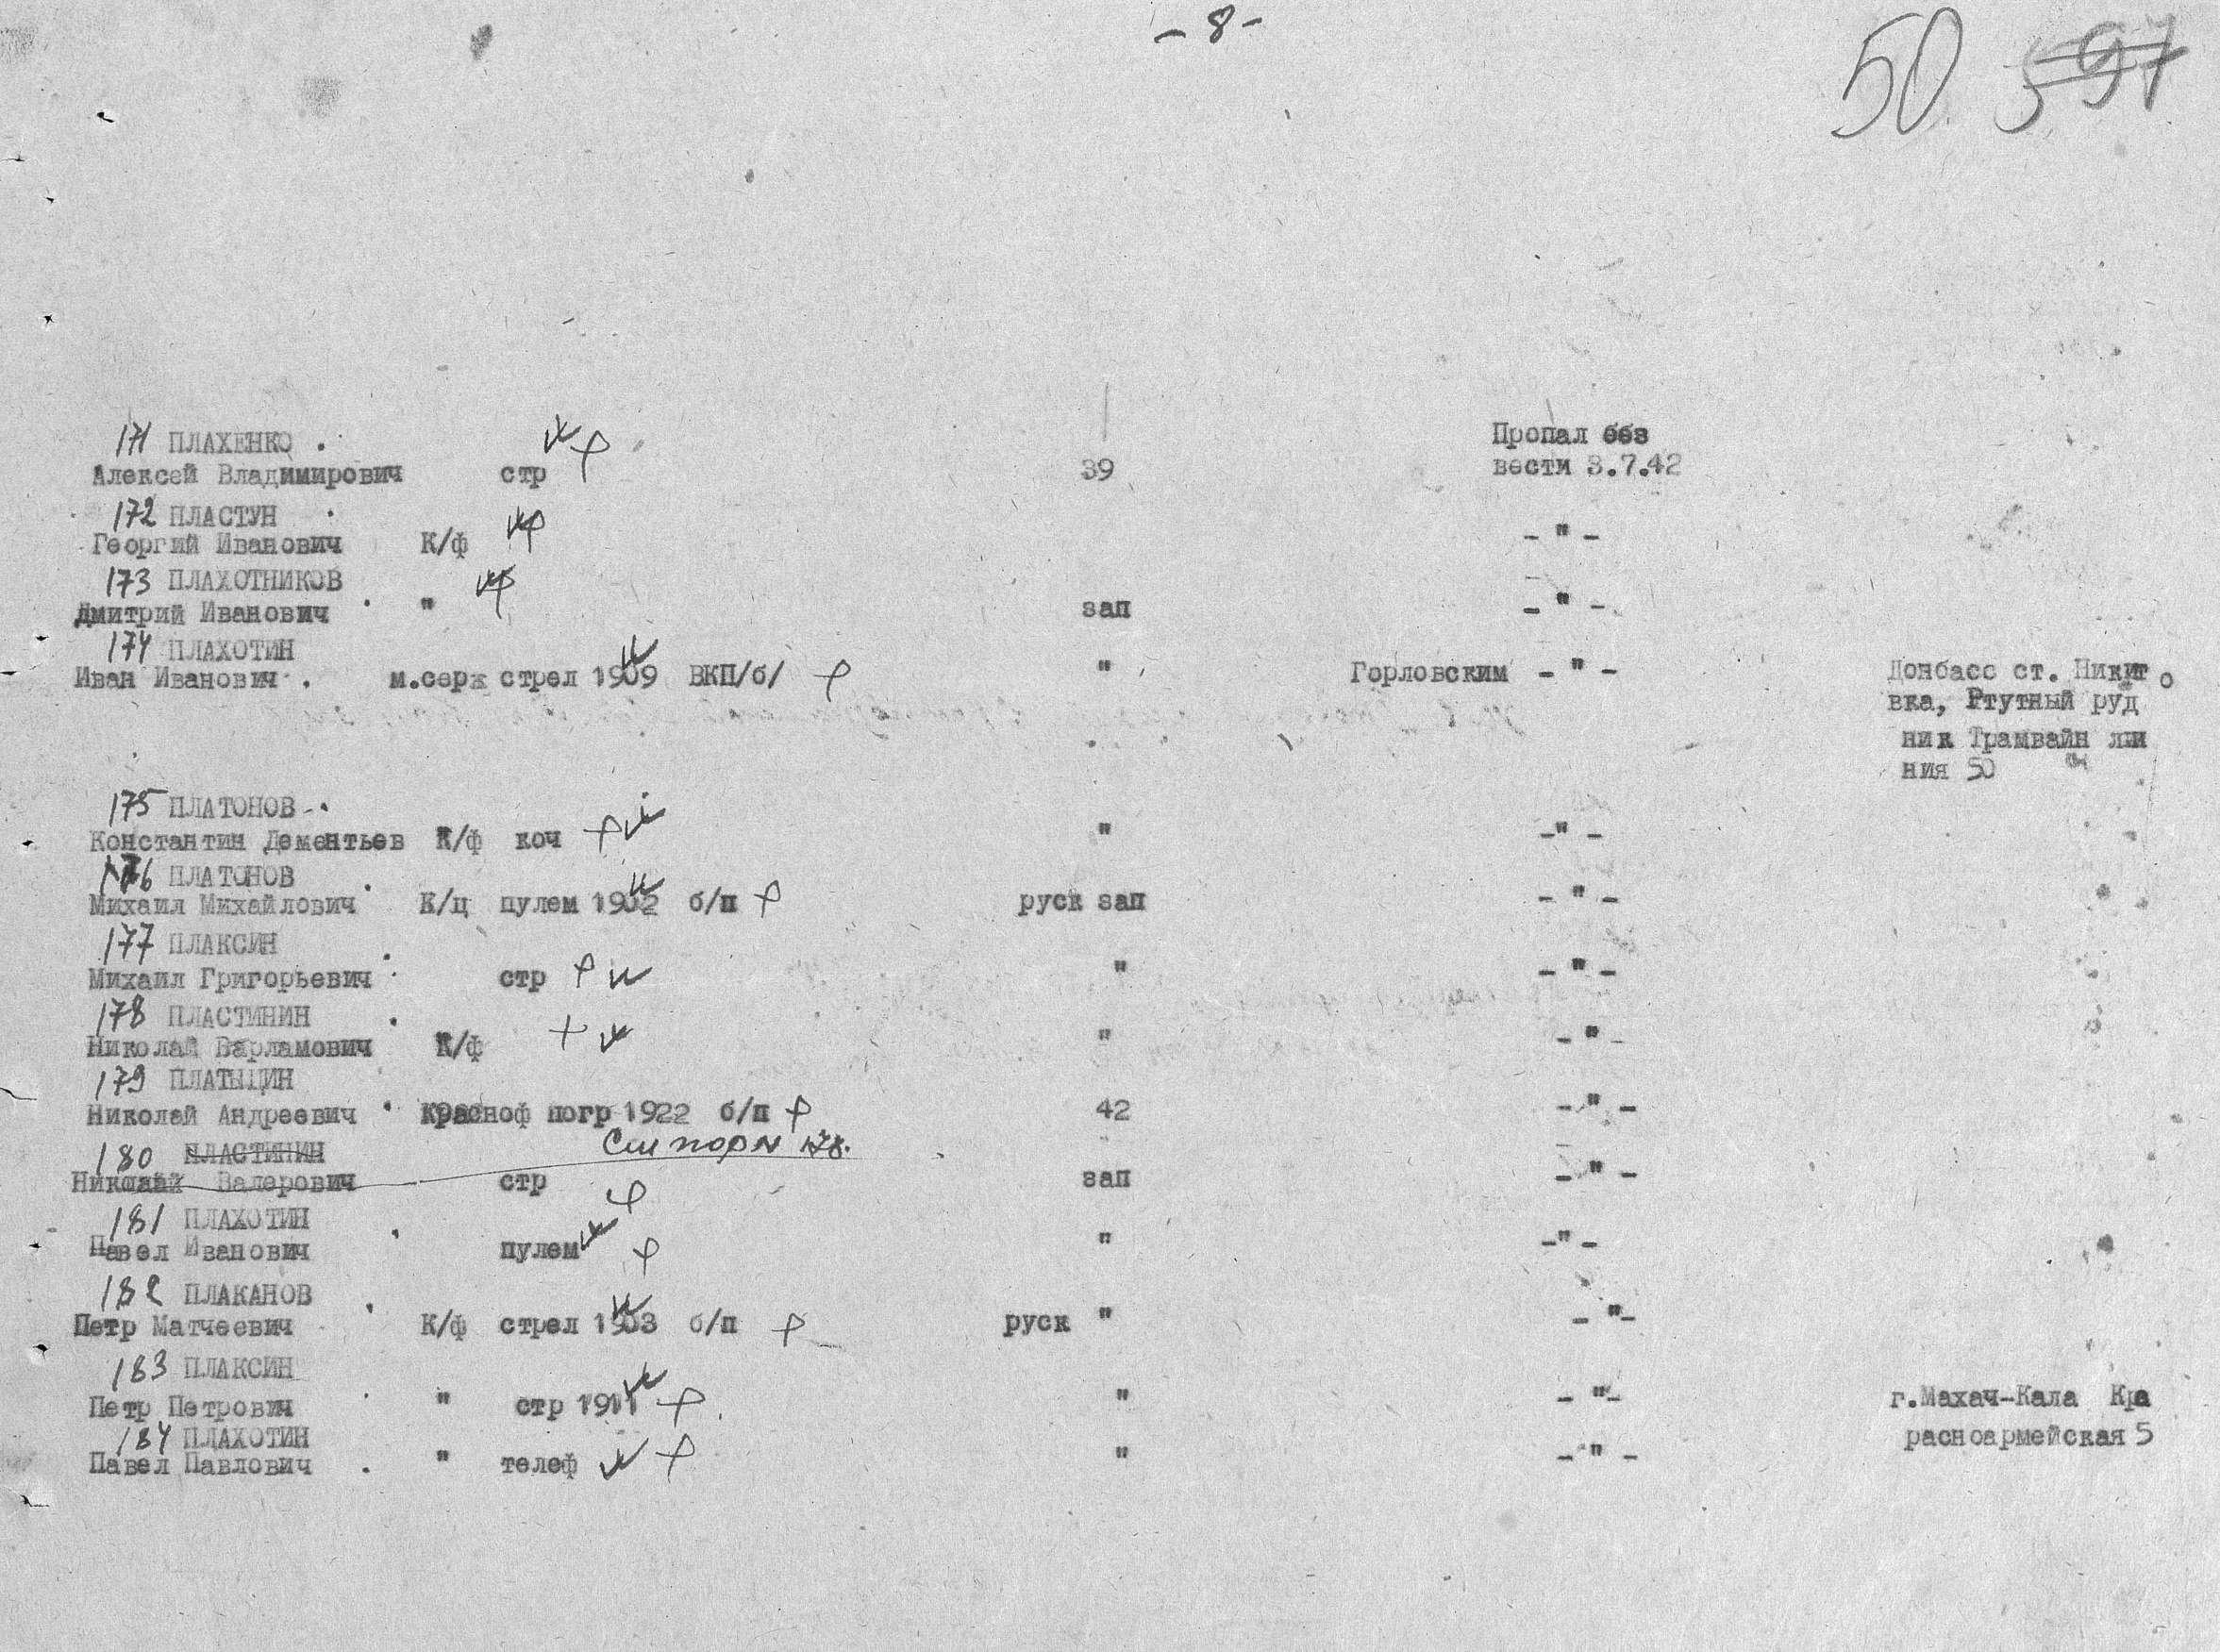 - 8 -
50 597
171 ПЛАХЕНКО .
Пропал без
Алексей Владимирович стр 39 вести 3.7.42
172 ПЛАСТУН
Георгий Иванович К/ф - " -
173 ПЛАХОТНИКОВ
Дмитрий Иванович " зап - " -
174 ПЛАХОТИН
Иван Иванович . м.серж стрел 1909 ВКП/б/ " Горловским - " - Донбасс ст. Никит о
вка, Ртутный руд
ник Трамвайн ли
ния 50
175 ПЛАТОНОВ - .
Константин Дементьев К/ф коч " - " -
176 ПЛАТОНОВ
Михаил Михайлович К/ц пулем 1902 б/п руск зап - " -
177 ПЛАКСИН
Михаил Григорьевич стр " - " -
178 ПЛАСТИНИН
Николай Варламович К/ф " - " -
179 ПЛАТЫЦИН
Николай Андреевич Красноф погр 1922 б/п 42 - " -
См пор N 178.
180 ПЛАСТИНИН
Николай Валерович стр зап - " -
181 ПЛАХОТИН
Павел Иванович пулем " - " -
182 ПЛАКАНОВ
Петр Матчеевич К/ф стрел 1903 б/п руск " - " -
183 ПЛАКСИН
Петр Петрович " стр 1911 " - " - г.Махач-Кала Кра
184 ПЛАХОТИН расноармейская 5
Павел Павлович . " телеф " - " -